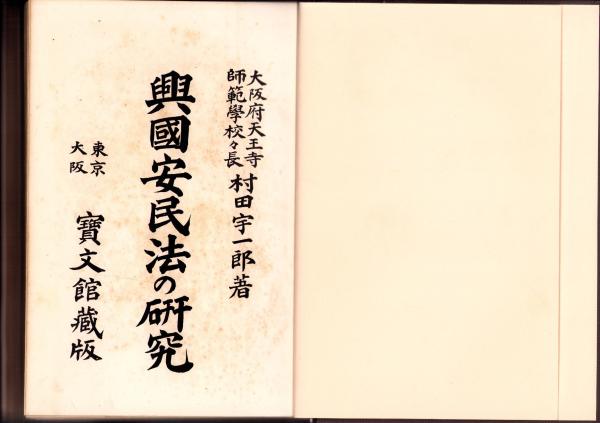 大阪府天王寺
師範學校々長
村田宇一郎著
興國安民法の研究
東京
大阪
寶文館藏版